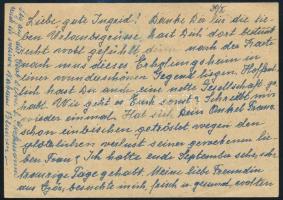 30/X
Liebe gute Ingrid! Danke Dir für die lie-
ben Urlaubsgrüsse, hast Dich dort bestimmt
recht wohl gefühlt, denn nach der Karte
nach muss dieses Erholungsheim in
einer wunderschönen Gegend liegen. Hoffent-
lich hast Du auch eine nette Gesellschaft ge-
habt. Wie geht es Euch sonst? Schreibt mir
wieder einmal. Hat sich Dein Onkel Franz
schon einbischen getröstet wegen den
plötzlichen verlust seiner gewesenen lie-
ben Frau? Ich hatte ende September sehr, sehr
traurige Tage gehabt. Meine liebe Freundin
aus Györ besuchte mich, frisch u. gesund, wollten